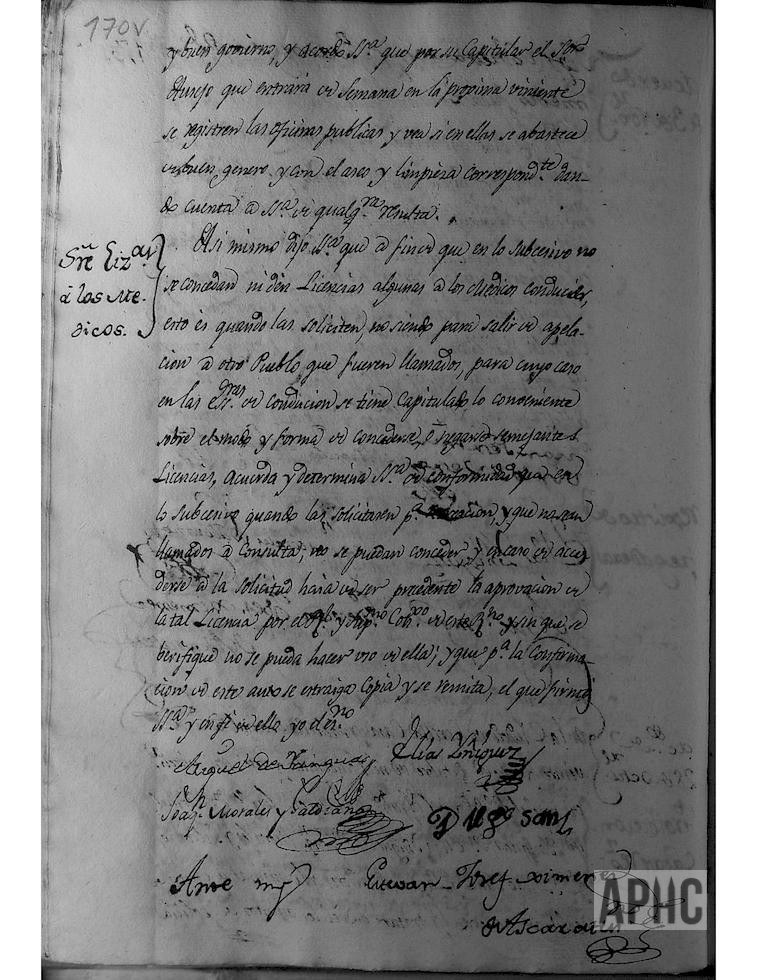 170V
y buen govierno, y acordó Sª que por su Capitular el Sor
Aurejo que entrará de Semana en la proxima viniente
se registren las oficinas publicas y vea si en ellas se abastece
de buen genero, y con el aseo y limpieza correspondte dan-
do cuenta a Sª de qualqra resulta.
Sre Lizas
â los Me-
dicos.
Asi mismo dijo Sª que a fin de que en lo subcesivo no
se concedan ni dèn Licencias algunas a los Medicos conducidos,
esto es quando las soliciten, no siendo para salir de apela-
cion a otro Pueblo que fueren llamados, para cuyo caso
en las Esras de conducion se tiene Capitulado lo conveniente
sobre el modo y forma de concederse, ò negarse semejantes
Licencias, acuerda y determina Sª de conformidad que en
lo subcesivo quando las solicitaren pª y que no sean
llamados a Consulta; no se puedan conceder y en caso de acce-
derse a la solicitud haia de ser precedente la aprovacion de
la tal Licencia por el Rl y Supmo Conso de este Rno y sin que se
berifique no se pueda hacer uso de ella; y que pª la Confirma-
cion de este auto se estraiga Copia y se remita, el que firmó
Sª y en fe de ello yo el esno
Miguel de
Elias Yñiguez
Joaqn Morales y
Dugo Sanz
Ante my
Estevan Josef Ximenez
de Ascarate
APHC